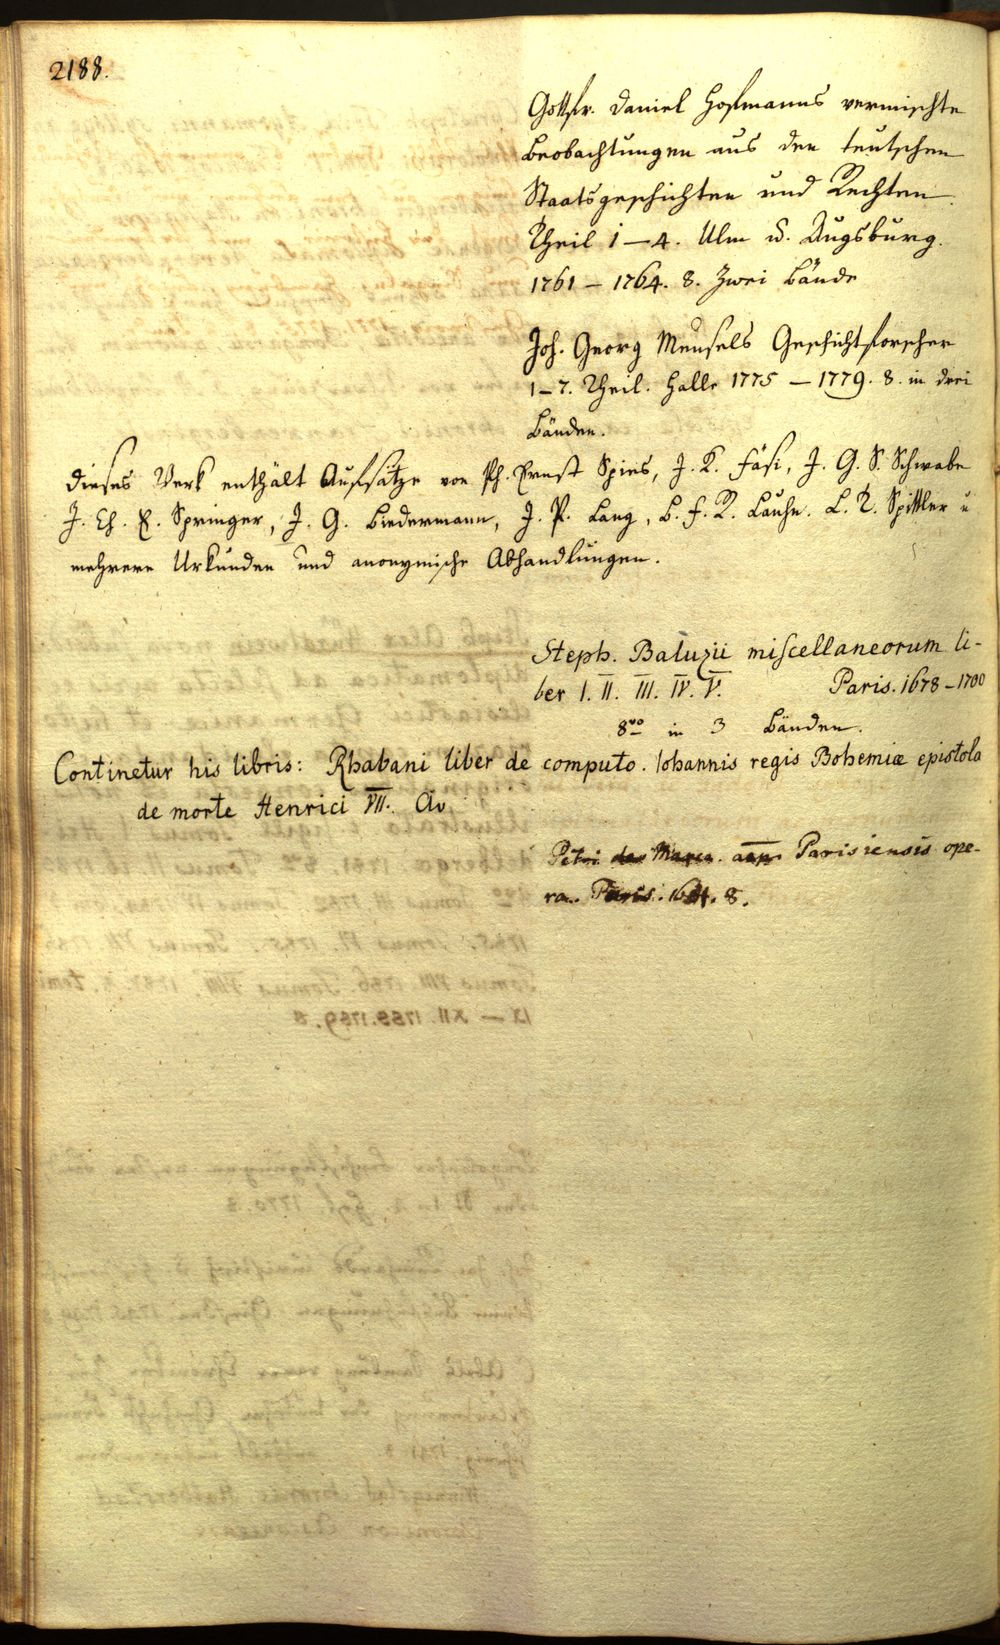 2188.
Gottfr. Daniel Hofmanns vermischte
Beobachtungen aus den teutschen
Staatsgeschichten und Rechten
Theil 1–4. Ulm u. Augsburg.
1761 – 1764. 8. Zwei Bände
Joh. Georg Meusels Geschichtsforscher
1–7. Theil. Halle 1775 – 1779. 8. in drei
Bänden.
Dieses Werk enthält Aufsätze von Ph. Ernst Spies, J. K. Fäsi, J. G. S. Schwabe
J. Ch. E. Springer, J. G. Biedermann, J. P. Lang, B. F. R. Lauhn. L. T. Spittler u
mehrere Urkunden und anonymische Abhandlungen.
Steph. Baluzii miscellaneorum li-
ber I. II. III. IV. V. Paris. 1678 – 1700
8vo in 3 Bänden.
Continetur his libris: Rhabani liber de computo. Iohannis regis Bohemiæ epistola
de morte Henrici VII.
Petri de Marca Parisiensis ope-
ra. Paris. 8.